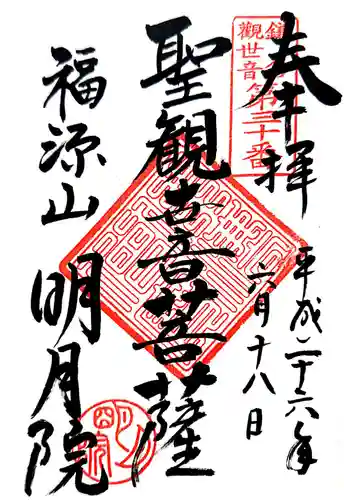 奉拝
鎌倉
觀世音第三十番
平成二十六年
六月十八日
聖観世音菩薩
福源山
明月院